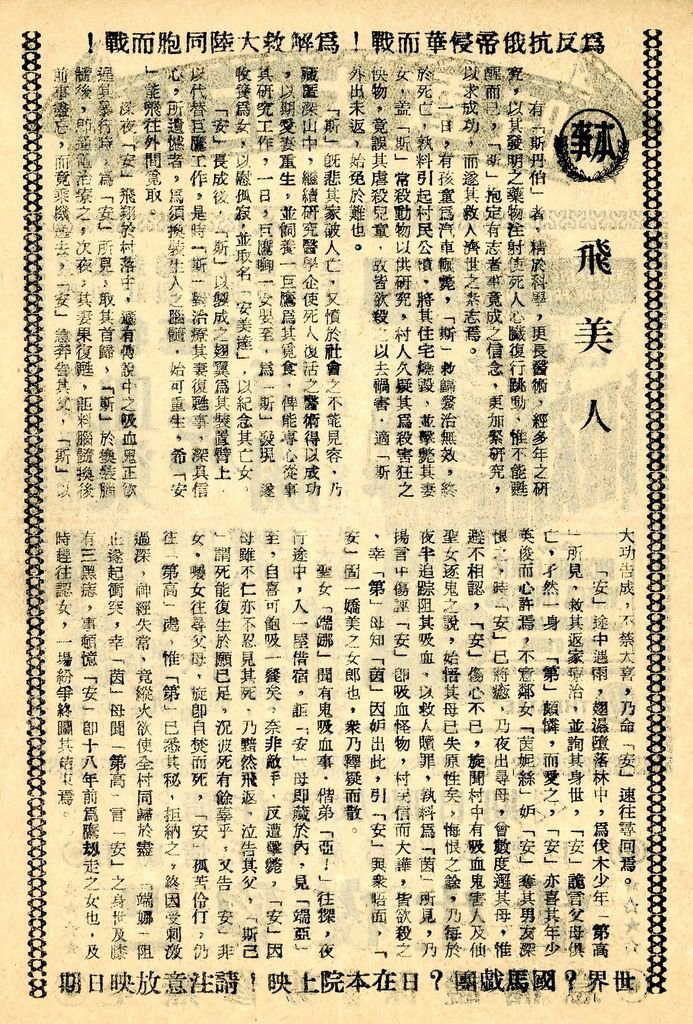 爲反抗俄帝侵華而戰！爲解救大陸同胞而戰！
本事
飛美人
有「斯丹伯」者，精於科學，更長醫術，經多年之研
究，以其發明之藥物注射使死人心臟復行跳動，惟不能甦
醒而已，「斯」抱定有志者事竟成之信念，更加緊研究，
以求成功，而遂其救人濟世之素志焉。
一日，有孩童爲汽車輾斃，「斯」救歸醫治無效，終
於死亡，孰料引起村民公憤，將其住宅燒毀，並擊斃其妻
女，蓋「斯」常殺動物以供研究，村人久疑其爲殺害狂之
怏物，竟誤其虐殺兒童，故皆欲殺之以去禍害，適「斯」
外出未返，始免於難也。
「斯」旣悲其家破人亡，又憤於社會之不能見容，乃
藏匿深山中，繼續研究醫學企使死人復活之醫術得以成功
，以期愛妻重生，並飼養一巨鷹爲其覓食，俾能專心從事
其研究工作，一日，巨鷹啣一女嬰至，爲「斯」發現，遂
收養爲女，以慰孤寂，並取名「安美達」，以紀念其亡女。
「安」長成後，「斯」以製成之翅翼爲其裝置臂上，
以代替巨鷹工作，是時「斯」對治療其妻復甦事，深具信
心，所遺憾者，爲須換裝生人之腦髓，始可重生，希「安
」能飛往外間覓取。
深夜「安」飛翔於村落中，適有傳說中之吸血鬼正欲
逞其暴行時，爲「安」所見，取其首歸，「斯」於換裝腦
髓後，即通電治療之，次夜，其妻果復甦，詎料腦髓換後
前事盡忘，而竟乘機離去，「安」急奔告其父，「斯」以
大功告成，不禁大喜，乃命「安」速往尋回焉。
「安」途中遇雨，翅濕墮落林中，爲伐木少年「第高
」所見，救其返家療治，並詢其身世，「安」詭言父母俱
亡，孑然一身，「第」頗憐，而愛之，「安」亦喜其年少
英俊而心許焉，不意鄰女「茵妮絲」妒「安」奪其男友深
恨之，時「安」已將癒，乃夜出尋母，曾數度遇其母，惟
遽不相認，「安」傷心不已，旋聞村中有吸血鬼害人及仙
聖女逐鬼之說，始悟其母已失原性矣，悔恨之餘，乃每於
夜半追踪阻其吸血，以救人贖罪，孰料爲「茵」所見，乃
揚言中傷誣「安」卽吸血怪物，村民信而大譁，皆欲殺之
，幸「第」母知「茵」因妒出此，引「安」與衆晤面，「
安」固一嬌美之女郎也，衆乃釋疑而散。
聖女「端娜」聞有鬼吸血事，偕弟「亞！」往探，夜
行途中，入一屋借宿，詎「安」母即藏於內，見「端亞」
至，自喜可飽吸一餐矣，奈非敵手，反遭擊斃，「安」因
母雖不仁亦不忍見其死，乃黯然飛返，泣告其父，「斯己
」謂死能復生於願已足，況彼死有餘辜乎，又告「安」非
女，囑女往尋父母，旋即自焚而死，「安」孤苦伶仃，仍
往「第高」處，惟「第」已悉其秘，拒納之，終因受刺激
過深，神經失常，竟縱火欲使全村同歸於盡，「端娜」阻
止遂起衝突，幸「茵」母聞「第高」言「安」之身世及膝
有三黑痣，事頓憶「安」卽十八年前爲鷹刼走之女也，及
時趕往認女，一場紛爭終圖其結束焉。
世界？國馬戲團？日在本院上映！請注意放映日期